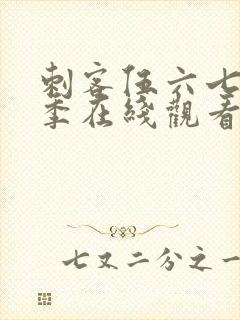 刺客伍六七
季在綫觀看
七又二分之一